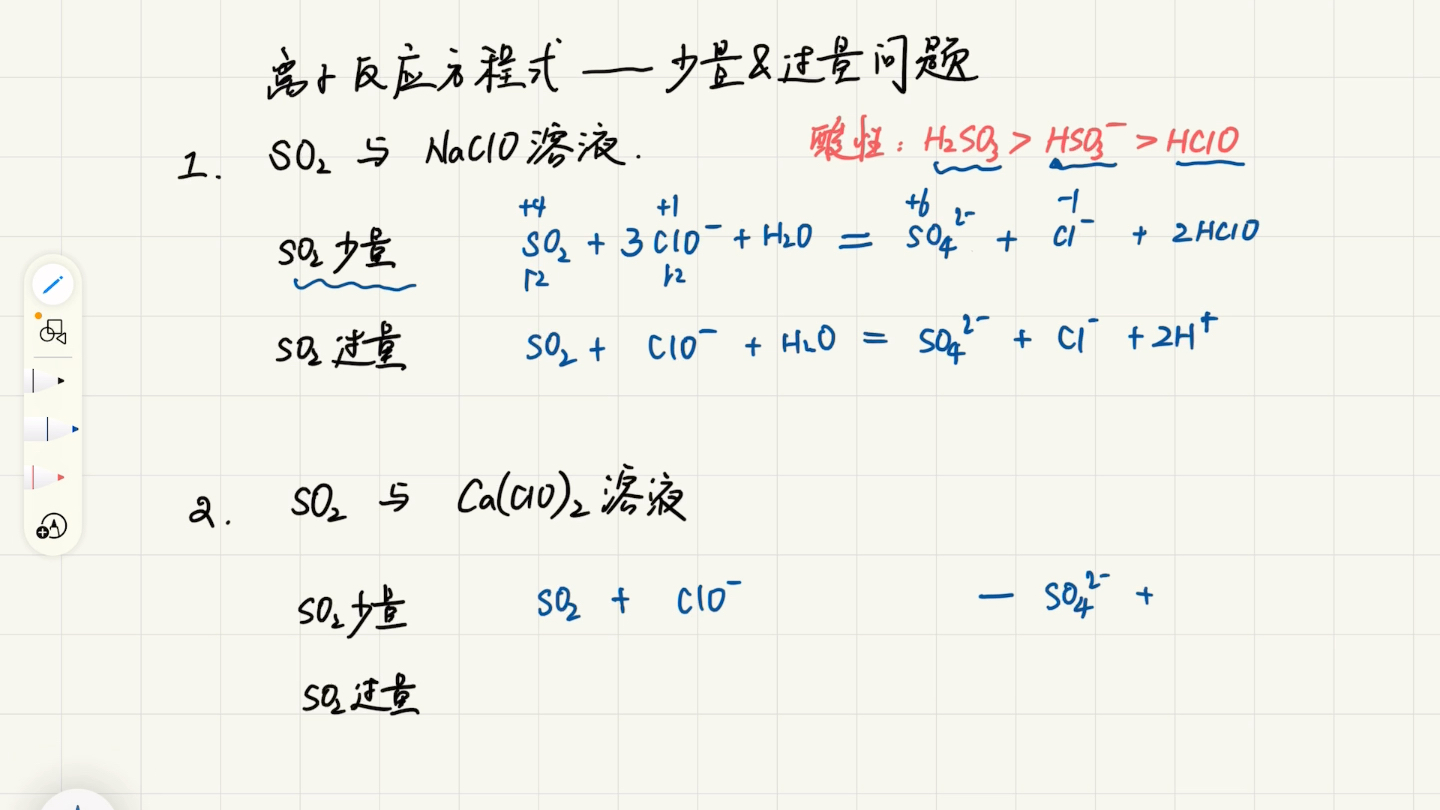 离子反应方程式 — 少量&过量问题
1. SO₂ 与 NaClO溶液.
酸性：H₂SO₃ > HSO₃⁻ > HClO
+4 +1 +6 -1
SO₂少量 SO₂ + 3ClO⁻ + H₂O = SO₄²⁻ + Cl⁻ + 2HClO
↑2 ↓2
SO₂过量 SO₂ + ClO⁻ + H₂O = SO₄²⁻ + Cl⁻ + 2H⁺
2. SO₂ 与 Ca(ClO)₂溶液
SO₂少量 SO₂ + ClO⁻ — SO₄²⁻ +
SO₂过量